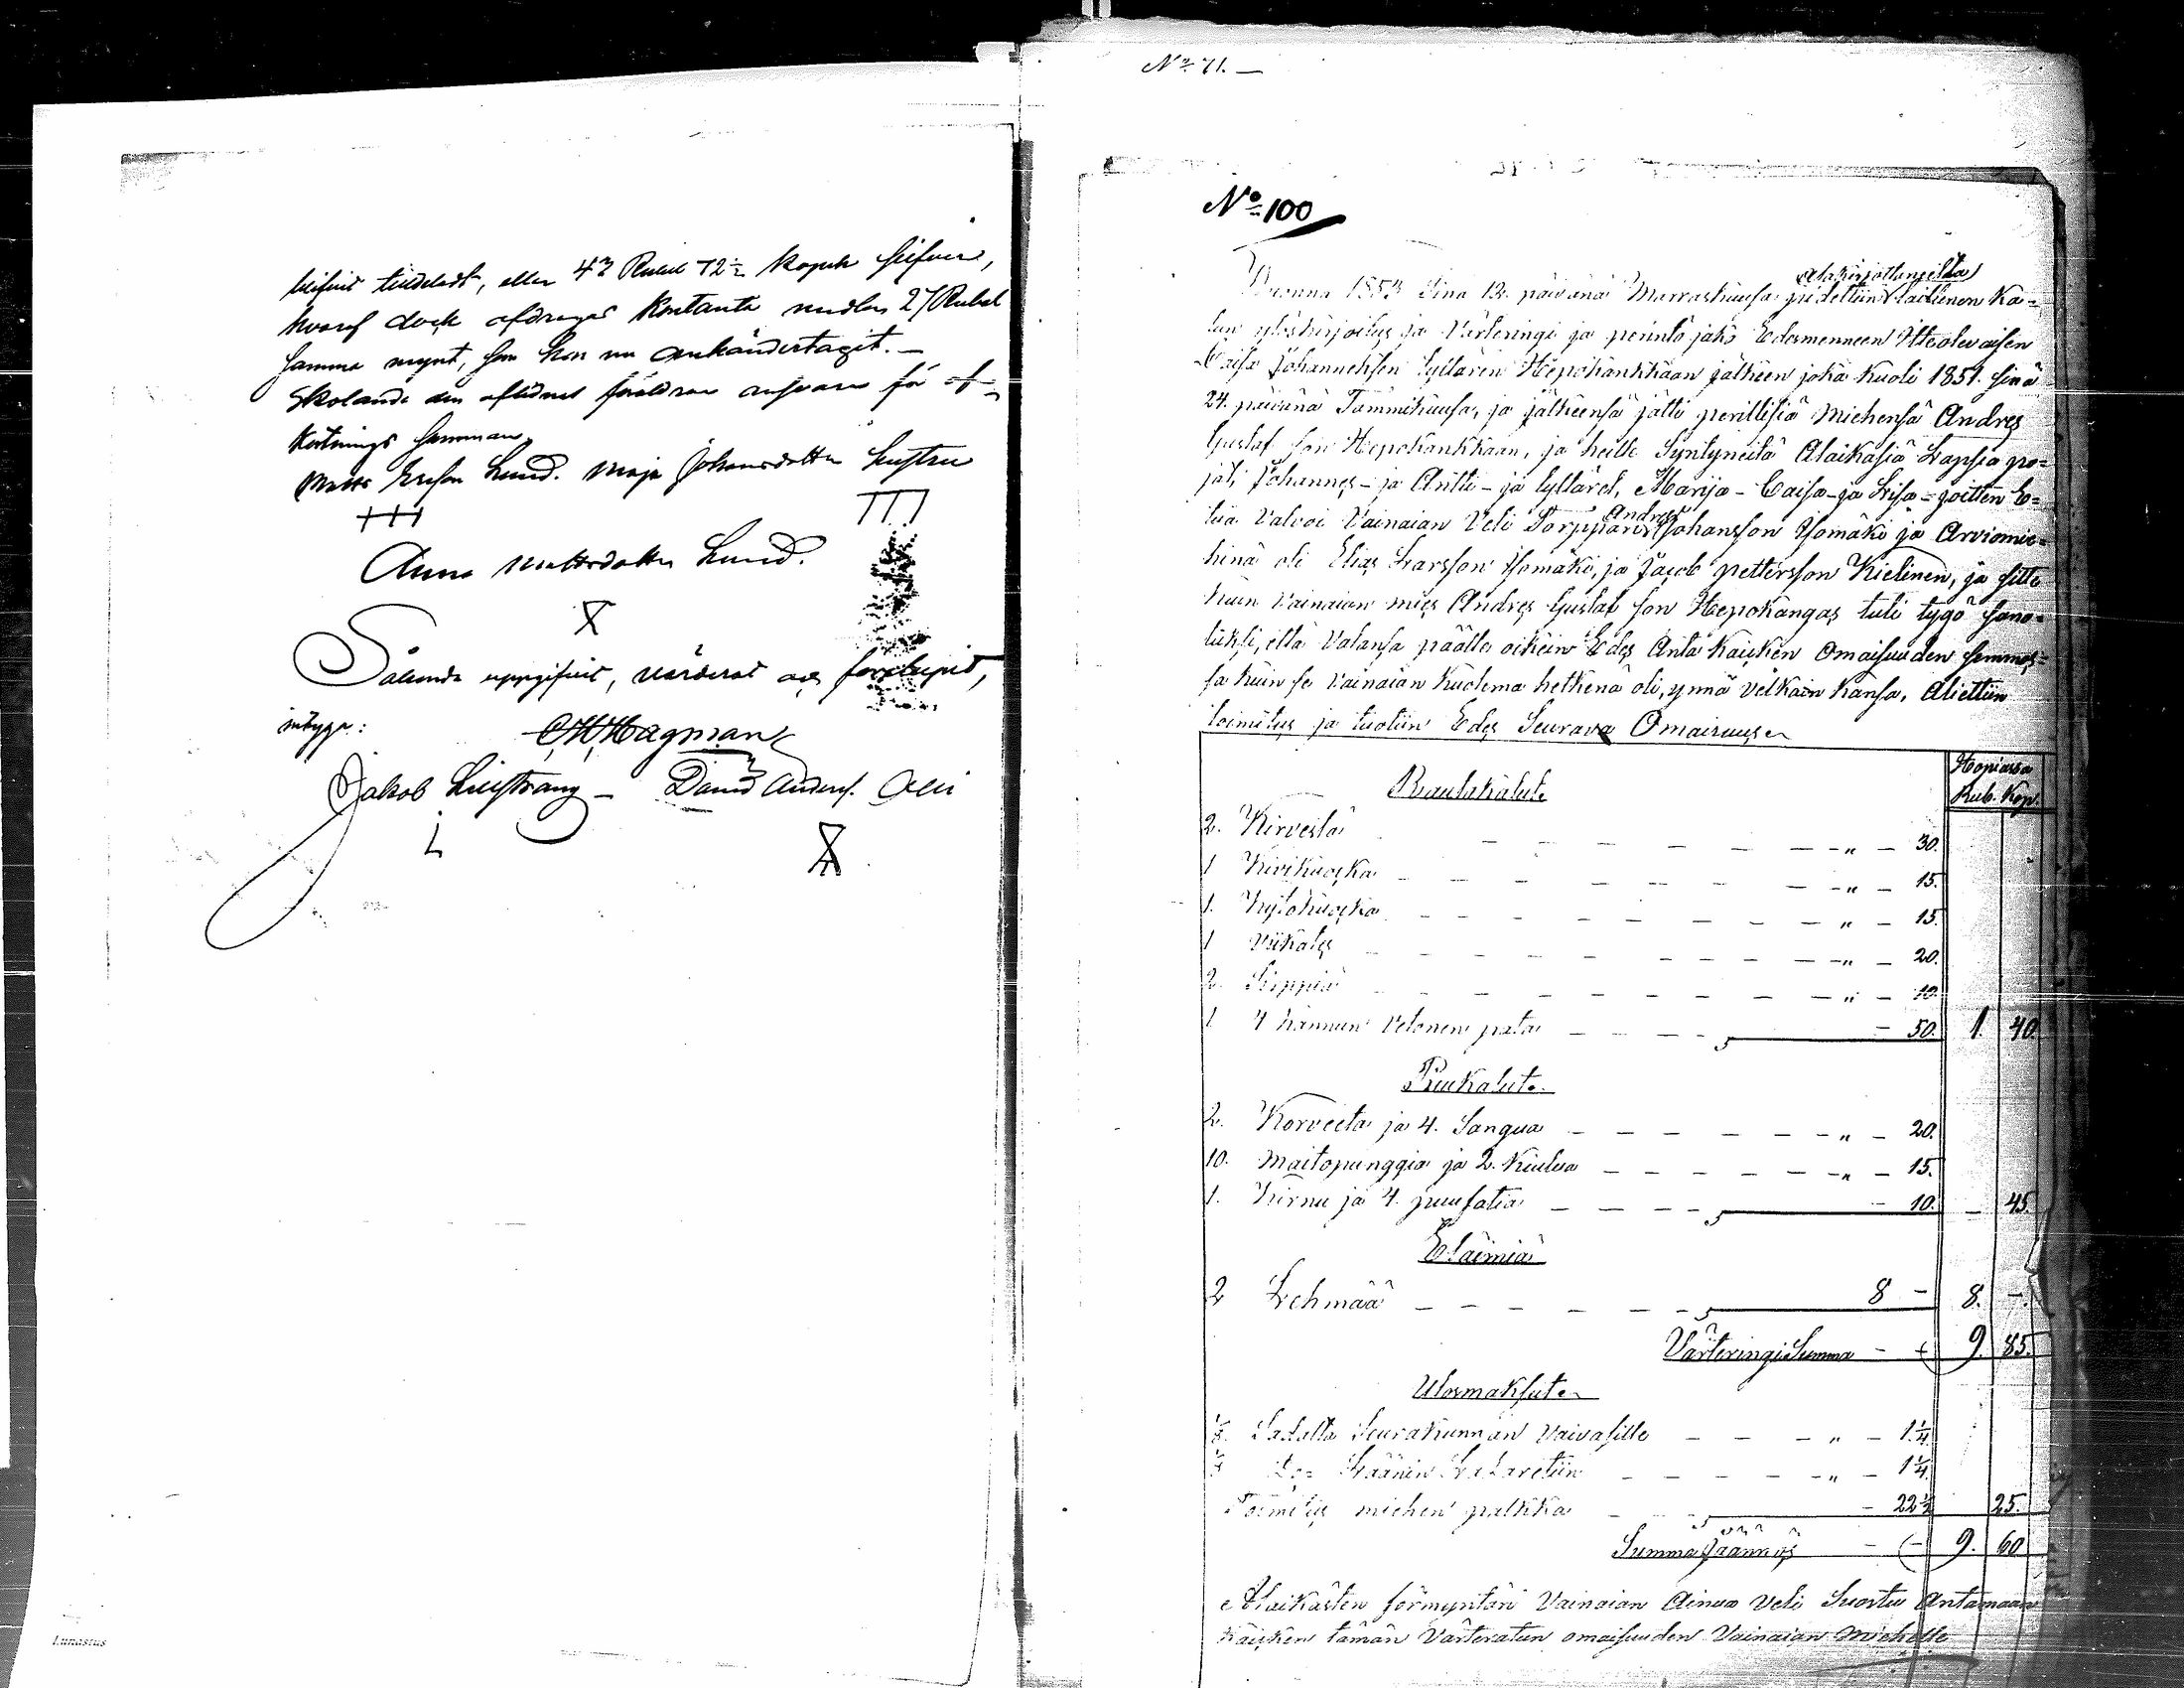 tilledelt, eller 43 Rubel 72½ kopek silfver,
hvaraf dock afdrages kontanta medlen 27 Rubel
samma mynt, som hon nu omhändertagit.—
Skolande den aflidnes föräldrar ansvara för af-
kortnings summan
Matts Ersson Lund. Maja Johansdotter hustru
Anna Mattsdotter Lund.
Sålunda uppgifvit, värderat och
intyga:
CM Hagman
Jakob — David Anders.
Nº 71.—
Nº 100
alakirjottaneilta
Vuonna 1853 Sina 13. päivänä Marraskuusa pidettiin Laillinen Ka=
lun ylöskirjoitus ja Värteringi ja perintö jako Edesmenneen Itteolevaisen
Caisa Johanneksen tyttären Hepokankkaan jälkeen joka kuoli 1851. sinä
24. päivänä Tammikuusa, ja jälkeensä jätti perillisiä Miehensä Andres
Gustaf son Hepokankkaan, ja heille Syntyneitä Alaikäsiä Lapsia po=
jat, Johannes - ja Antti - ja tyttäret, Marija - Caisa - ja Lisa = joitten E=
tua Valvoi Vainaian Veli Torppari Andres Johansson Isomäki ja Arviomie=
hinä oli Elias Larsson Isomäki, ja Jacob Pettersson Kielinen, ja sitte
kuin Vainaian mies Andres Gustaf son Hepokangas tuli tygö sano=
tuksi, että Valansa päälle oikein Edes Anta Kaicken Omaisuuden semmos=
sa kuin se Vainaian Kuolema hetkenä oli, ynnä velkain kansa, Aliettiin
toimitus ja tuotiin Edes Seurava Omaisuus
Hopiassa
Rub. Kop.
Rautakalut
2. Kirvestä — „ — 30.
1 Kivikuocka — „ — 15.
1. Kytökuocka — „ — 15.
1 Viikates — „ — 20.
2. Sirppiä — „ — 10.
1 4 kannun Vetonen pata — 50. 1. 40.
Puukalut.
2. Korveeta ja 4. Sangua — „ — 20.
10. Maitopunggia ja 2. Kiulua — „ — 15.
1. Kirnu ja 4. puufatia — 10. — 45.
Eläimiä
2 Lehmää 8 — 8. —.
Värteringi Summa — 9. 85.
Ulosmaksut
⅛. Sadalta Seurakunnan Vaivasille — „ — 1¼.
⅛ Do= Läänin Lasaretiin — „ — 1¼.
Toimitus miehen palkka — 22½ 25.
Summa Jäännös — 9. 60
Alaikästen förmyntäri Vainaian Ainua Veli Suostu Antamaan
Kaicken tämän Värteratun omaisuuden Vainaian Miehelle
Lunastus